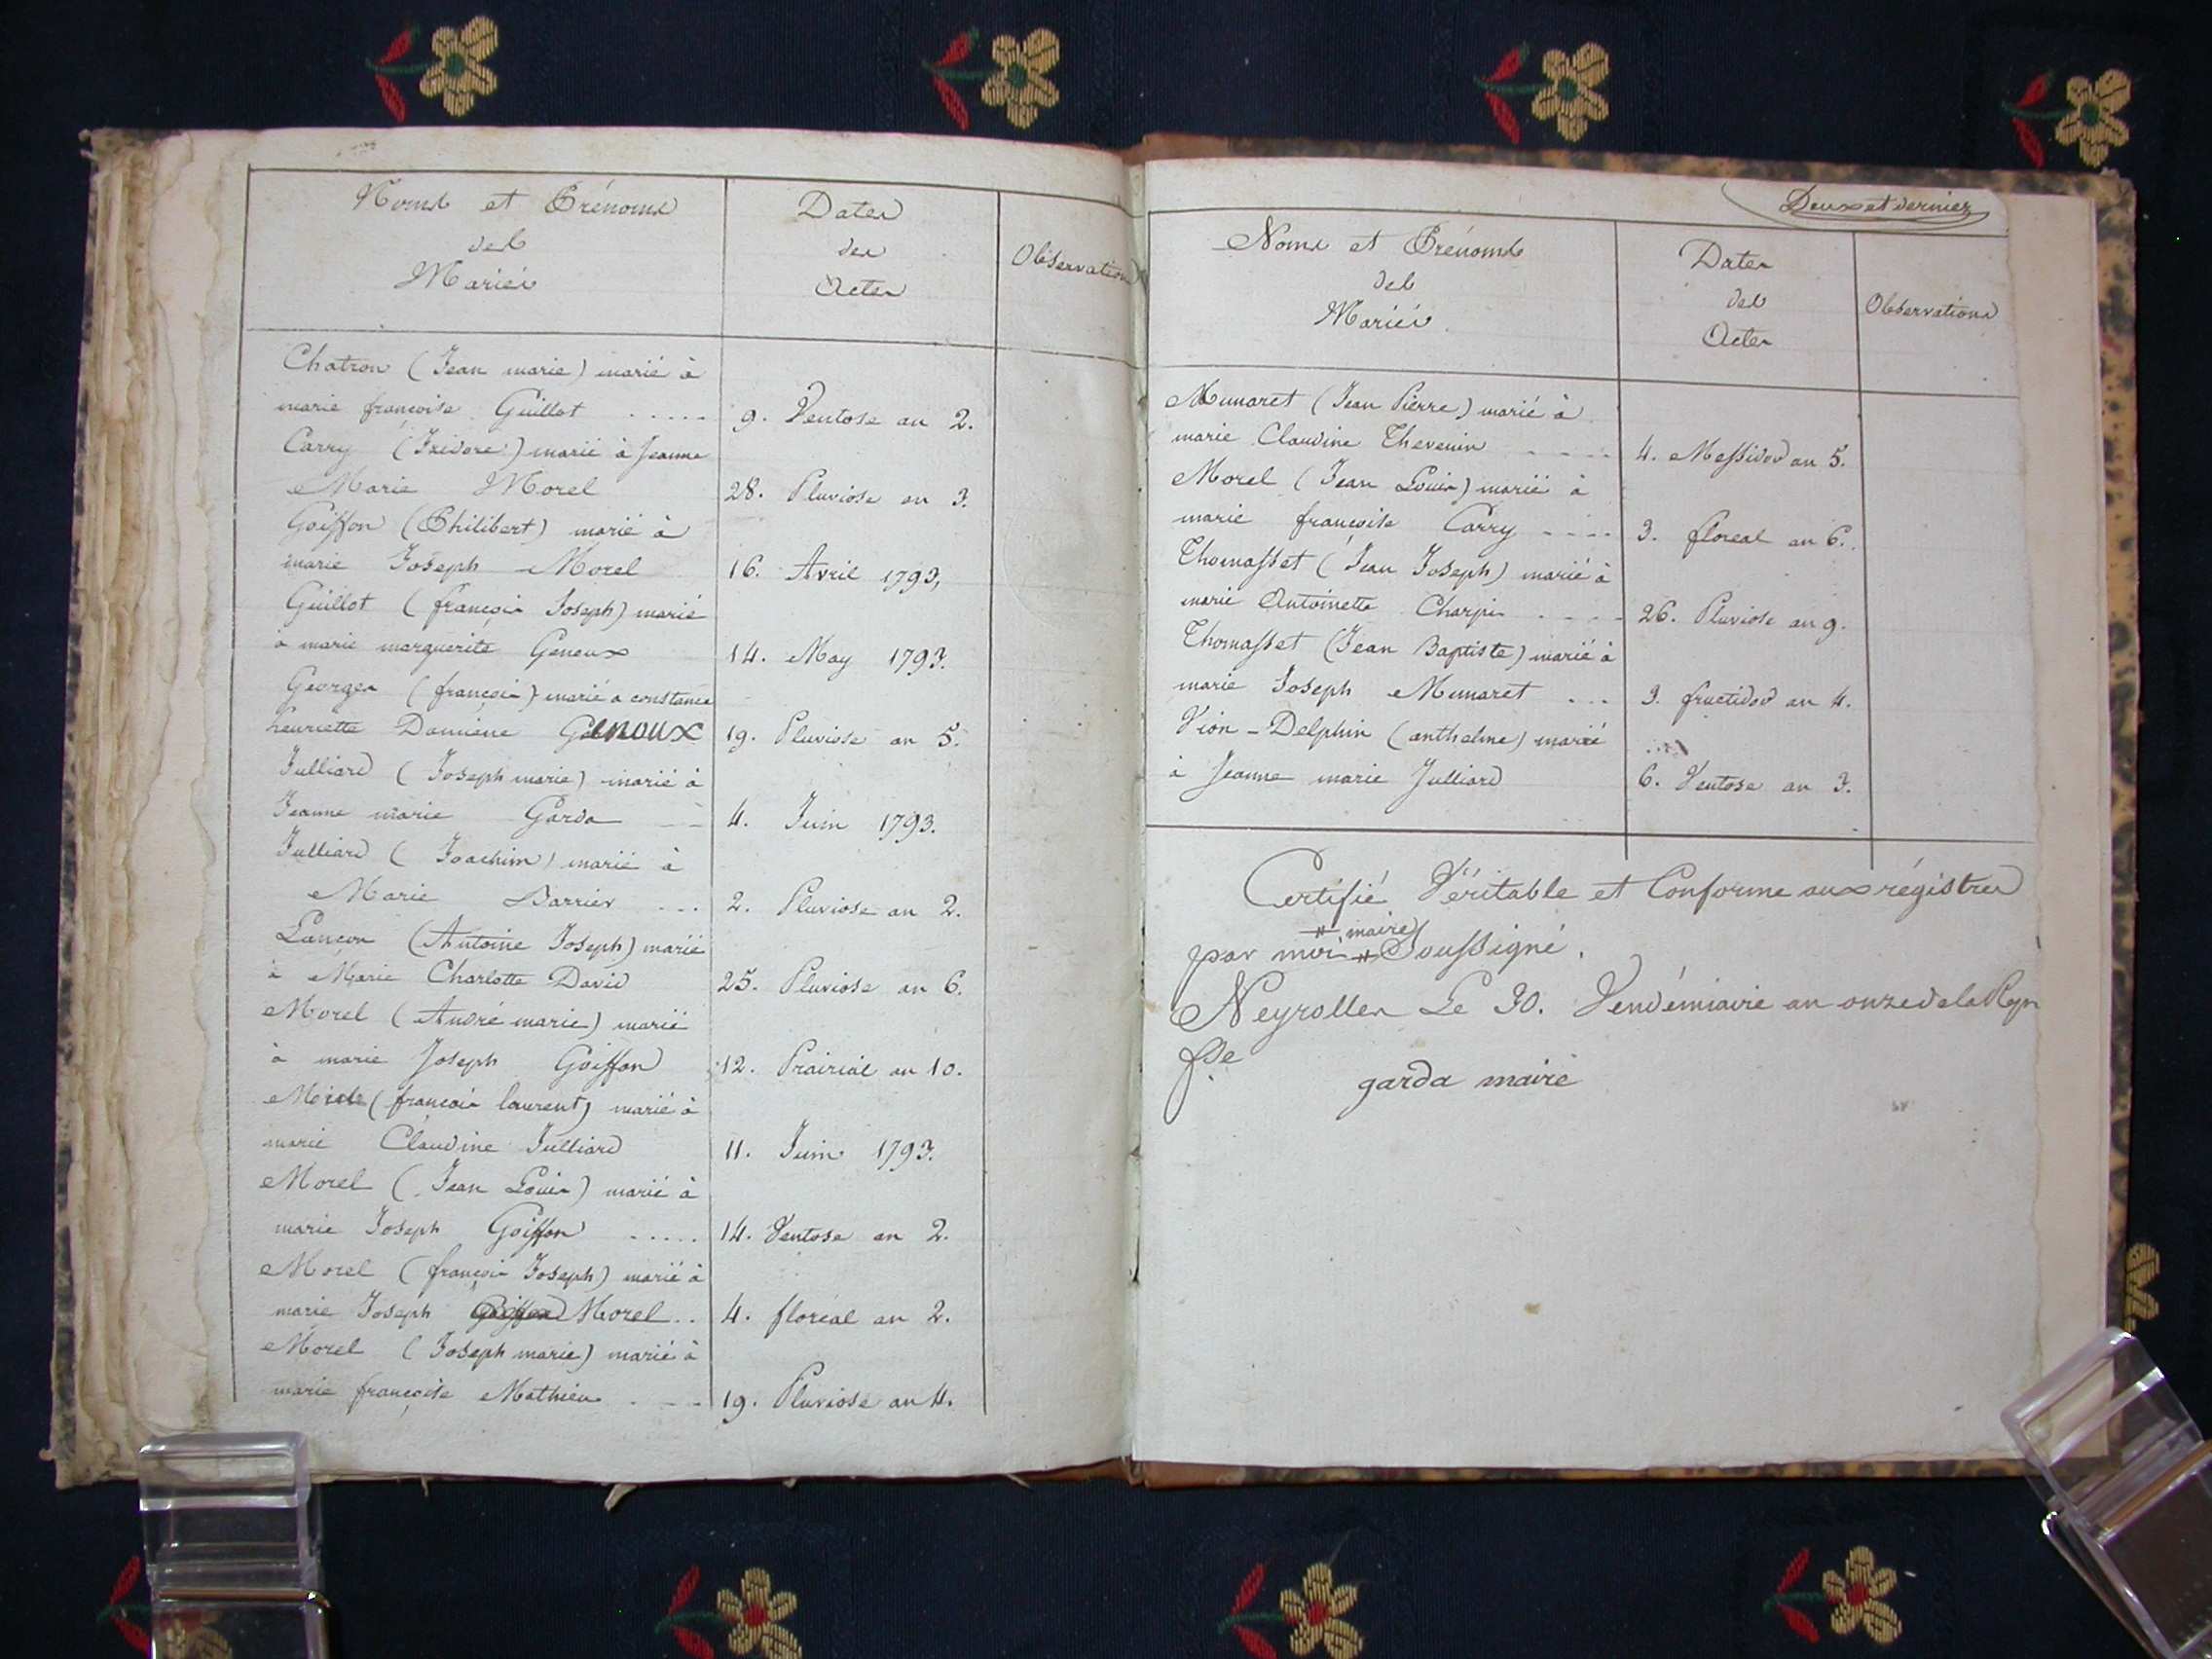 Noms et Prénoms
des
Mariés
Dates
des
Actes
Observations
Chatron (Jean marie) marié à
marie françoise Guillot ..... 9. Ventose an 2.
Carry (Isidore) marié à Jeanne
Marie Morel 28. Pluviose an 3.
Goiffon (Philibert) marié à
marie Joseph Morel 16. Avril 1793,
Guillot (françois Joseph) marié
à marie marguerite Geneux 14. May 1793.
Georges (françois) marié a constance
henriette Damiene Genoux 19. Pluviose an 5.
Julliard (Joseph marie) marié à
Jeanne marie Garda 4. Juin 1793.
Julliard (Joachim) marié à
Marie Barrier ... 2. Pluviose an 2.
Lançon (Antoine Joseph) marié
à Marie Charlotte David 25. Pluviose an 6.
Morel (André marie) marié
à marie Joseph Goiffon 12. Prairial an 10.
(françois laurent) marié à
marie Claudine Julliard 11. Juin 1793.
Morel (Jean Louis) marié à
marie Joseph Goiffon ..... 14. Ventose an 2.
Morel (françois Joseph) marié à
marie Joseph Goiffon Morel .. 4. floréal an 2.
Morel (Joseph marie) marié à
marie françoise Mathieu - - - 19. Pluviose an 4.
Deux et dernier
Noms et Prénoms
des
Mariés
Dates
des
Actes
Observations
Munaret (Jean Pierre) marié à
marie Claudine Thevenin - - - - 4. Messidor an 5.
Morel (Jean Louis) marié à
marie françoise Carry - - - - 3. floreal an 6.
Thomasset (Jean Joseph) marié à
marie Antoinette Charpi - - - - 26. Pluviose an 9.
Thomasset (Jean Baptiste) marié à
marie Joseph Munaret ... 3. fructidor an 4.
Vion-Delphin (anthelme) marié
à Jeanne marie Julliard 6. Ventose an 3.
Certifié Véritable et Conforme aux régistres
# maire
par moi # Soussigné.
Neyrolles Le 30. Vendémiaire an onze de la Rep
fse
garda maire